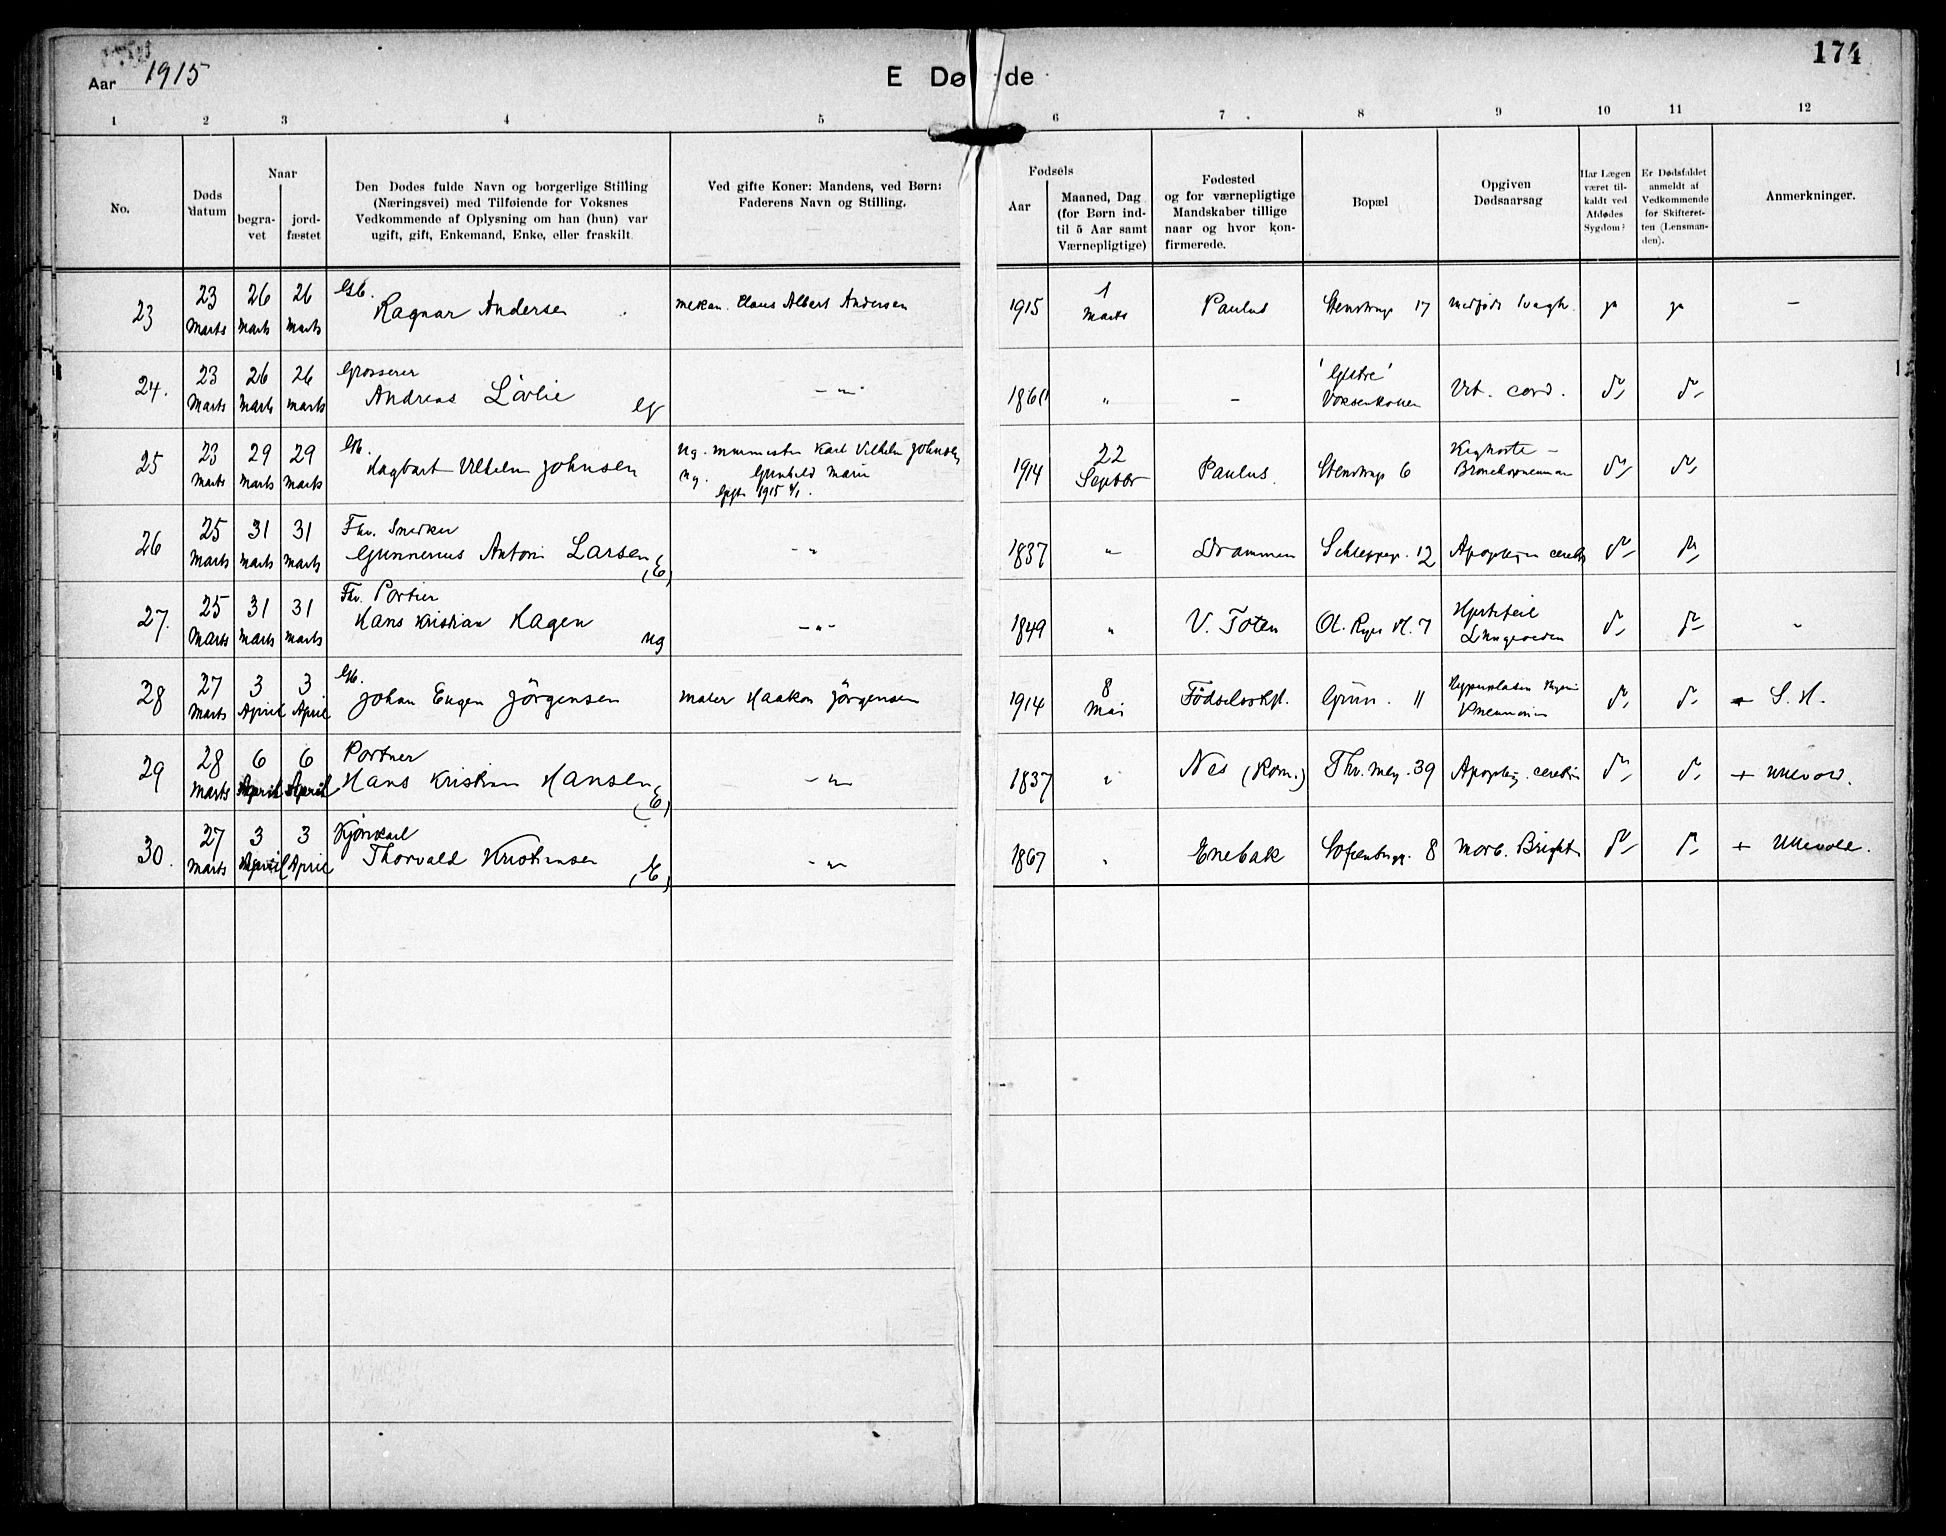 Aar 1915
E Dø de
174
1 2 3 4 5 6 7 8 9 10 11 12
No.
Døds datum
Naar
begra-vet
jord-fæstet
Den Dødes fulde Navn og borgerlige Stilling
(Næringsvei) med Tilføiende for Voksnes
Vedkommende af Oplysning om han (hun) var
ugift, gift, Enkemand, Enke, eller fraskilt.
Ved gifte Koner: Mandens, ved Børn:
Faderens Navn og Stilling.
Fødsels
Aar
Maaned, Dag
(for Børn ind-
til 5 Aar samt
Værnepligtige)
Fødested
og for værnepligtige
Mandskaber tillige
naar og hvor kon-
firmerede.
Bopæl
Opgiven
Dødsaarsag
Har Lægen
været til-
kaldt ved
Afdødes
Sygdom?
Er Dødsfaldet
anmeldt af
Vedkommende
for Skifteret-
ten (Lensman-
den).
Anmerkninger.
23 23 Marts 26 Marts 26 Marts Gb.
Ragnar Andersen mekan. Claus Albert Andersen 1915 1 Marts Paulus Stenstrup 17 medfødt svagh. ja ja –
24. 23 Marts 26 Marts 26 Marts Grosserer
Andreas Lövlie G – " – " – Voksenkollen Vit. cord. do do
25 23 Marts 29 Marts 29 Marts Gb.
Dagbart Vilhelm Johnsen Ug. murmester Karl Vilhelm Johnsen
Ug. Gunhild Marie
1915 1914 22 Septbr Paulus. Stenstrup 6 Kighoste –
Bronchopneumon do do
26 25 Marts 31 Marts 31 Marts Fhv. Snedker
Gunnerius Anton Larsen (E) – " 1837 " Drammen Schleppegr. 12 Apoplexia cerebri do do
27. 25 Marts 31 Marts 31 Marts Fhv. Portier
Hans Kristian Hagen ug – " – 1849 " V. Toten Ol. Ryes Pl. 7 Hjertefeil
Lungeødem do do "
28 27 Marts 3 April 3 April Gb.
Johan Eugen Jörgensen Maler Haakon Jörgensen 1914 8 Mai Födselsstift. Grün. 11 Pneumonia do do + S. H.
29 28 Marts 6 April 6 April Portner
Hans Kristian Hansen (E) – " – 1837 " Nes (Rom.) Thv. Mey. 39 Apoplexi. cerebri do do + Ullevold.
30. 27 Marts 3 April 3 April Kjørekarl
Thorvald Kristiansen (E) – " – 1867 " Enebak Sofienbergg. 8 Morb. Brighti do do + Ullevold.